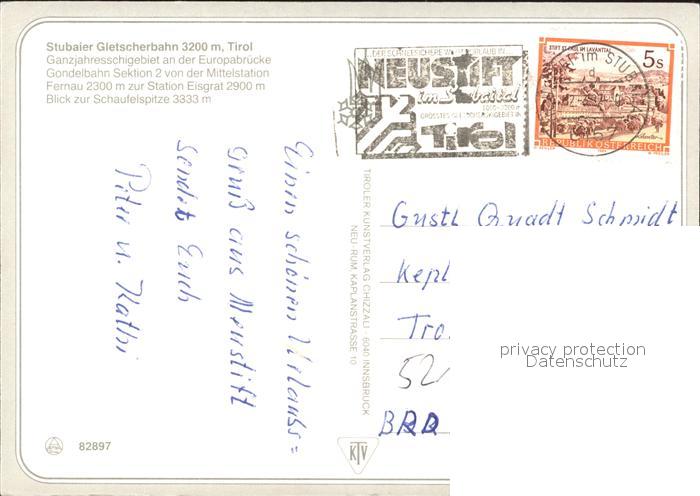 Stubaier Gletscherbahn 3200 m, Tirol
Ganzjahresschigebiet an der Europabrücke
Gondelbahn Sektion 2 von der Mittelstation
Fernau 2300 m zur Station Eisgrat 2900 m
Blick zur Schaufelspitze 3333 m
NEUSTIFT
im Stubaital
Tirol
STIFT ST. PAUL IM LAVANTTAL
5s
REPUBLIK ÖSTERREICH
Einen schönen Urlaubs=
gruß aus Neustift
sendet Euch
Peter u. Kathi
TIROLER KUNSTVERLAG CHIZZALI · 6040 INNSBRUCK
NEU-RUM, KAPLANSTRASSE 10
Gustl Quadt Schmidt
Kepl
Tro
52
BRD
privacy protection
Datenschutz
82897
KTV